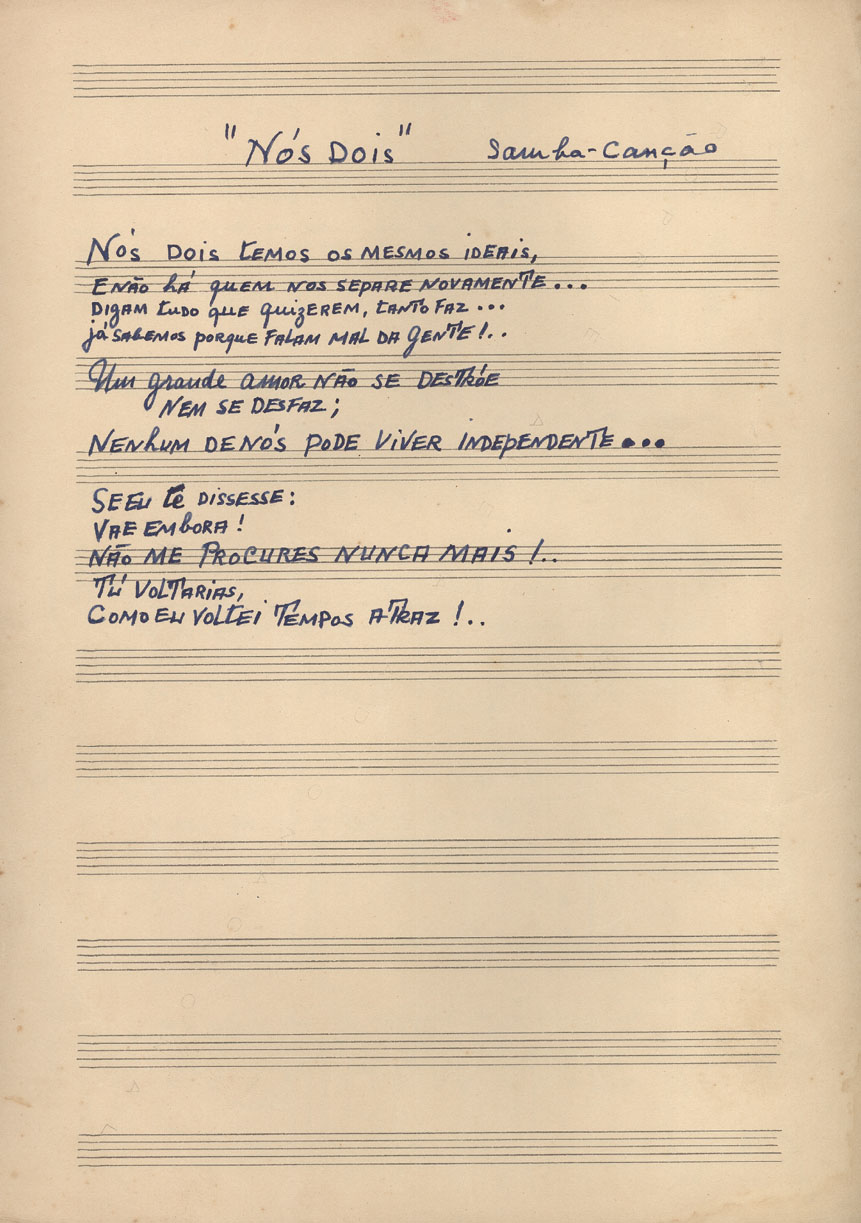 "Nós Dois" Samba-Canção
Nós Dois temos os mesmos ideais,
E não há quem nos separe novamente...
Digam tudo que quizerem, tanto faz...
já sabemos porque falam mal da gente!..
Um grande amor não se destróe
nem se desfaz;
Nenhum de nós pode viver independente...
Se eu te dissesse:
Vae embora!
Não me procures nunca mais!..
Tú voltarias,
Como eu voltei tempos atraz!..